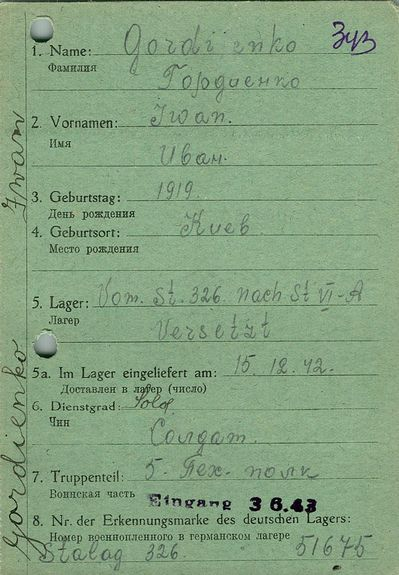 1. Name: Gordienko
Фамилия
Гордиенко
2. Vornamen: Iwan.
Имя
Иван.
3. Geburtstag: 1919.
День рождения
4. Geburtsort: Киев
Место рождения
5. Lager: Vom. St. 326. nach St VI-A
Лагер
Versetzt
5a. Im Lager eingeliefert am: 15. 12. 42.
Доставлен в лагер (число)
6. Dienstgrad: Sold
Чин
Солдат.
7. Truppenteil: 5. Пех. полк
Воинская часть Eingang 3 6.43
8. Nr. der Erkennungsmarke des deutschen Lagers:
Номер военнопленного в германском лагере
Stalag 326. 51675
Gordienko Iwan